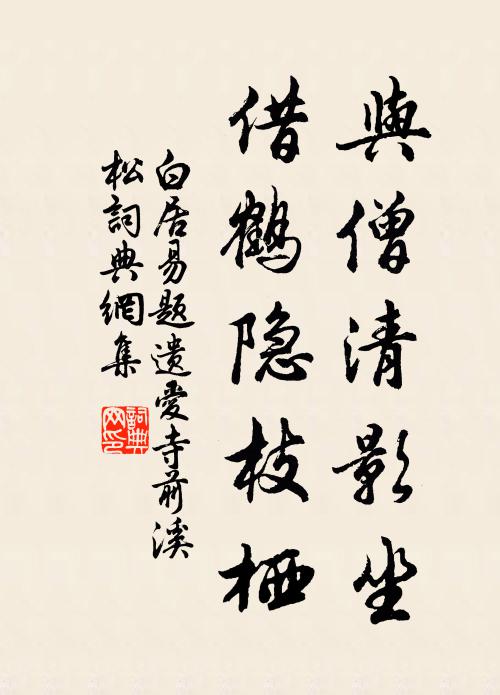 與僧清影坐
借鶴隐枝栖
白居易題遺愛寺前溪
松詞典網集
詞典网印